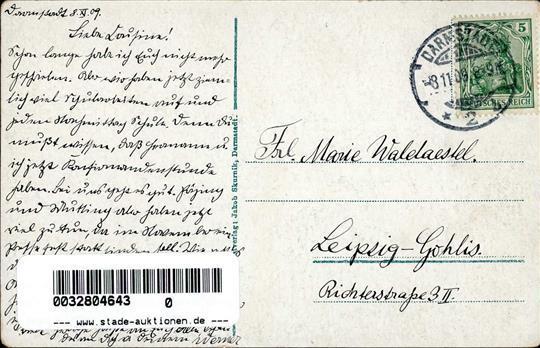 Darmstadt 8. XI 09.
Liebe Cousine!
Schon lange habe ich Euch nicht mehr
geschrieben. Aber wir haben jetzt ziem-
lich viel Schularbeiten auf und
jeden Nachmittag Schule. Denn Du
mußt wissen, daß Hermann u.
ich jetzt Konfirmandenstunde
haben. Bei uns geht es gut.
und haben jetzt
viel zu tun, da im Novem ber ein
fest statt finden soll. Wie
Verlag: Jakob Skurnik, Darmstadt.
DARMSTADT
8 11 09
* 2
5
DEUTSCHES REICH
Frl. Marie Waldaestel.
Leipzig-Gohlis.
Richterstraße 3 II.
0032804643 0
--- www.stade-auktionen.de ---
Werner